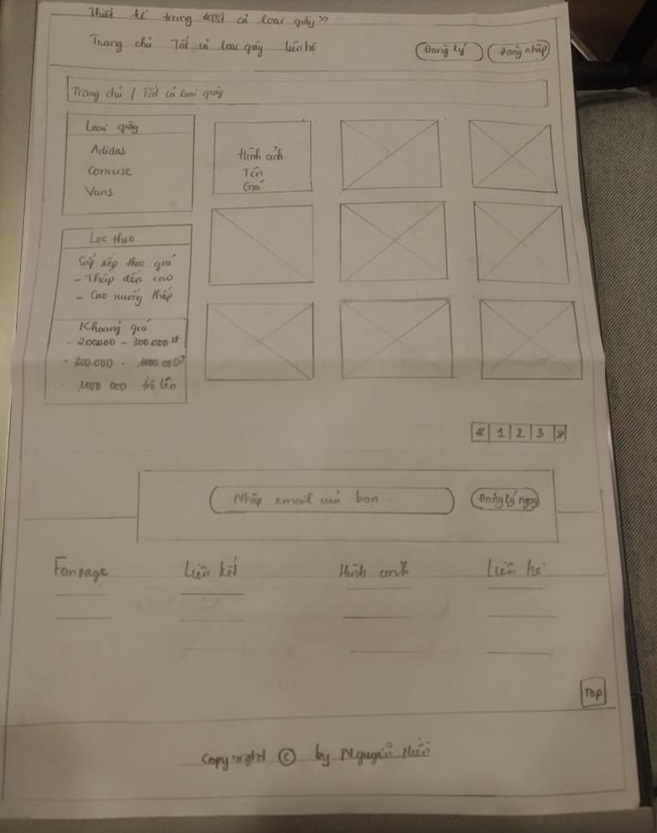 Thiết kế trang "Tất cả loại giày"
Trang chủ Tất cả loại giày Liên hệ
Đăng ký
Đăng nhập
Trang chủ / Tất cả loại giày
Loại giày
Adidas
Converse
Vans
Hình ảnh
Tên
Giá
Lọc theo
Sắp xếp theo giá
- Thấp đến cao
- Cao xuống thấp
Khoảng giá
- 200000 - 300.000đ
- 300.000 - 1000.000đ
- 1000 000 trở lên
« 1 2 3 »
Nhập email của bạn ...
Đăng ký ngay
Fanpage
Liên kết
Hình ảnh
Liên hệ
TOP
Copyright © by Nguyễn Hiền